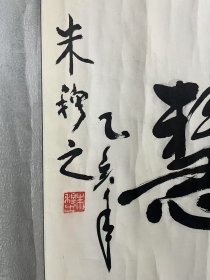 慧
乙亥年
朱穆之